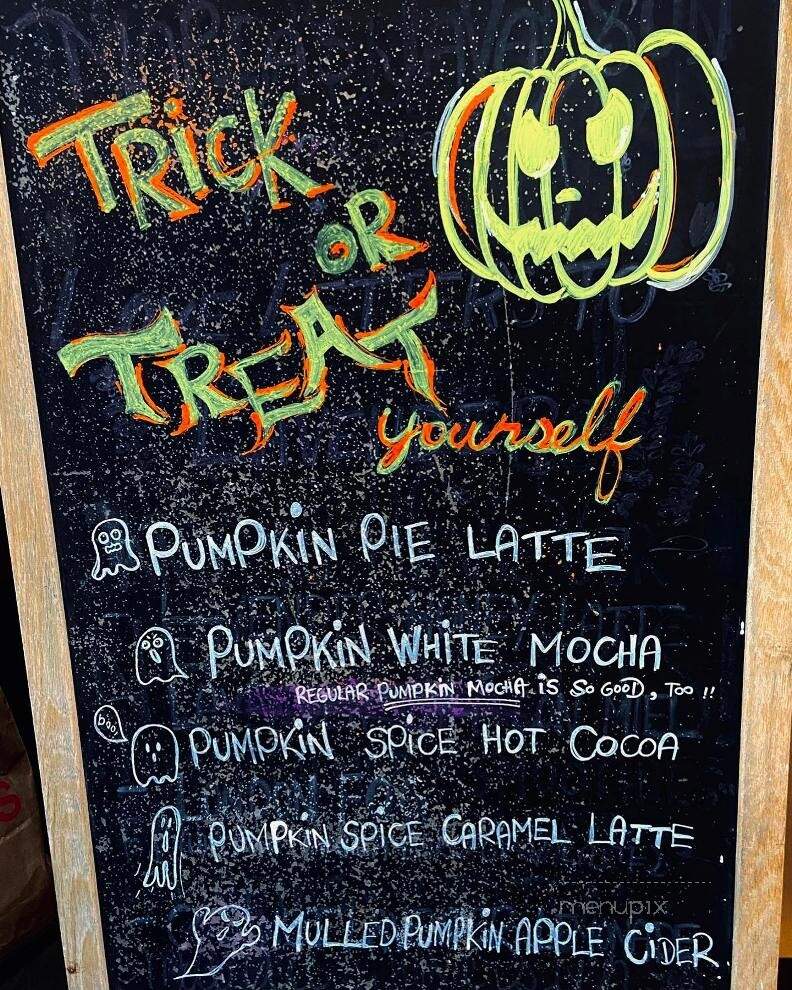 TRiCK
OR
TREAT
yourself
PUMPKiN PIE LATTE
PUMPKiN WHiTE MOCHA
REGULAR PUMPKiN MOCHA iS SO GOOD, TOO !!
boo!
PUMPKiN SPiCE HOT COCOA
PUMPKiN SPiCE CARAMEL LATTE
menupix
MULLED PUMPKiN APPLE CiDER